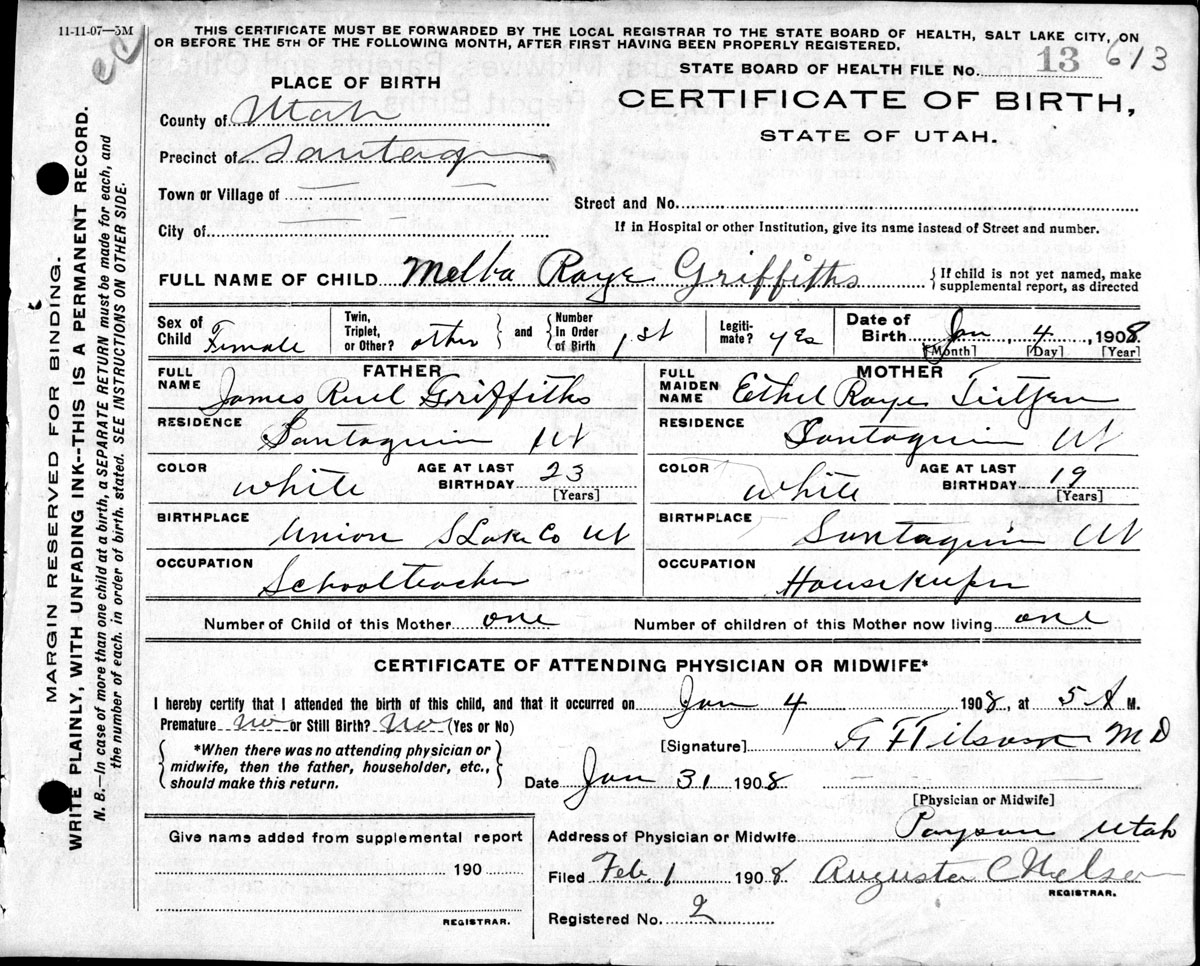 11-11-07—5M
THIS CERTIFICATE MUST BE FORWARDED BY THE LOCAL REGISTRAR TO THE STATE BOARD OF HEALTH, SALT LAKE CITY, ON
OR BEFORE THE 5TH OF THE FOLLOWING MONTH, AFTER FIRST HAVING BEEN PROPERLY REGISTERED.
STATE BOARD OF HEALTH FILE No. 13 613
PLACE OF BIRTH
CERTIFICATE OF BIRTH,
STATE OF UTAH.
County of Utah
Precinct of Santaquin
Town or Village of
Street and No.
City of
If in Hospital or other Institution, give its name instead of Street and number.
FULL NAME OF CHILD Melba Raye Griffiths
{If child is not yet named, make
supplemental report, as directed
Sex of Child Female
Twin, Triplet, or Other? other } and { Number In Order of Birth 1st
Legiti-mate? yes
Date of Birth Jan 4, 1908.
[Month] [Day] [Year]
FATHER
FULL NAME James Ruel Griffiths
RESIDENCE Santaquin Ut
COLOR white
AGE AT LAST BIRTHDAY 23
[Years]
BIRTHPLACE Union S Lake Co Ut
OCCUPATION Schoolteacher
MOTHER
FULL MAIDEN NAME Ethel Raye Tietjen
RESIDENCE Santaquin Ut
COLOR white
AGE AT LAST BIRTHDAY 19
[Years]
BIRTHPLACE Santaquin Ut
OCCUPATION Housekeeper
Number of Child of this Mother one
Number of children of this Mother now living one
CERTIFICATE OF ATTENDING PHYSICIAN OR MIDWIFE*
I hereby certify that I attended the birth of this child, and that it occurred on Jan 4 1908, at 5 A M.
Premature No or Still Birth? No (Yes or No)
{*When there was no attending physician or
midwife, then the father, householder, etc.,
should make this return.}
[Signature] M D
Date Jan 31 1908
[Physician or Midwife]
Give name added from supplemental report
190
REGISTRAR.
Address of Physician or Midwife Payson Utah
Filed Feb 1 1908 Augusta C Nelson
REGISTRAR.
Registered No. 2
MARGIN RESERVED FOR BINDING.
WRITE PLAINLY, WITH UNFADING INK--THIS IS A PERMANENT RECORD.
N. B.—In case of more than one child at a birth, a SEPARATE RETURN must be made for each, and
the number of each, in order of birth, stated. SEE INSTRUCTIONS ON OTHER SIDE.